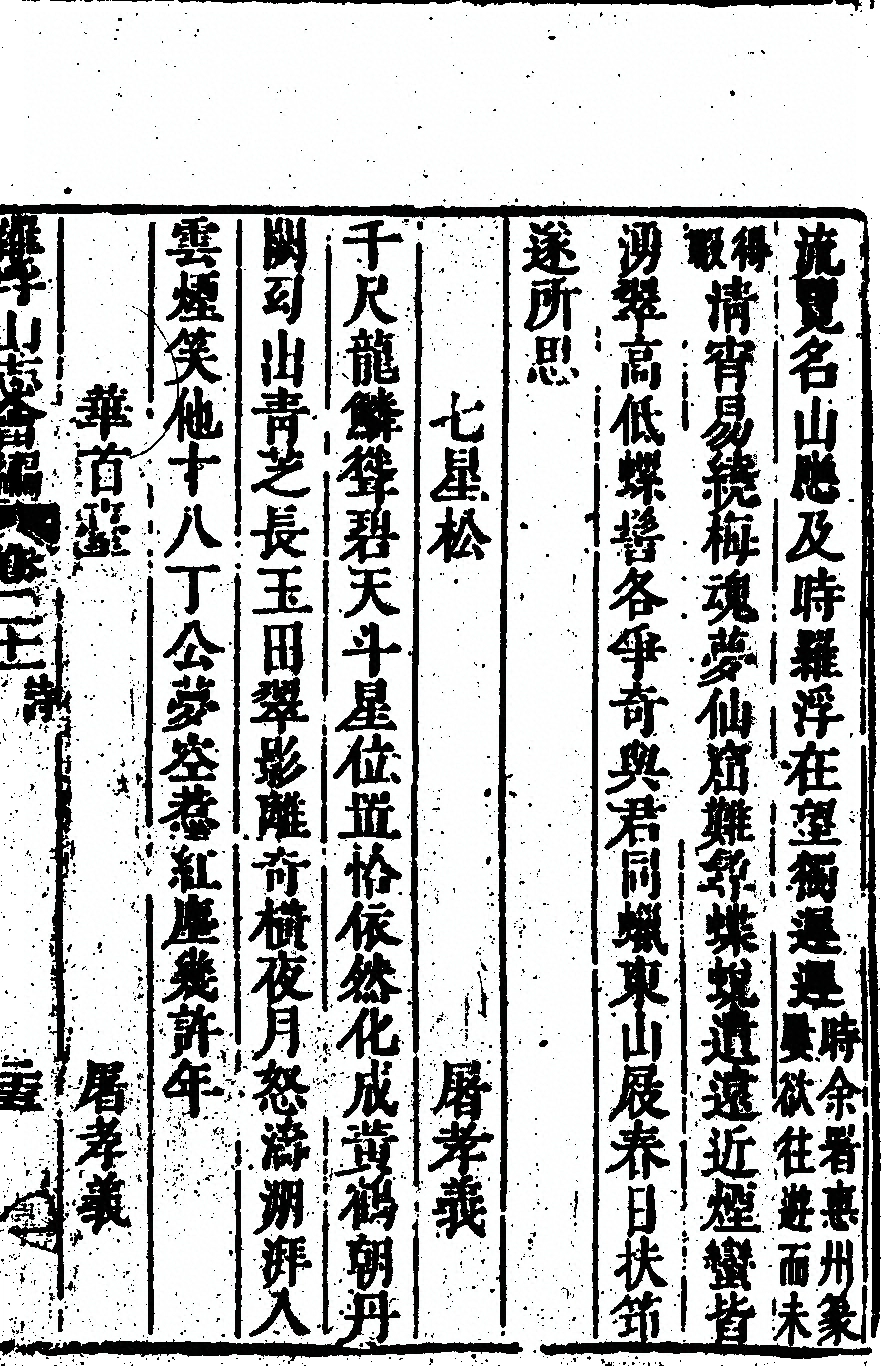 流覽名山應及時羅浮在望獨遲遲時余署惠州篆屢欲往遊而未
得暇情宵易繞梅魂夢仙窟難尋蝶蛻遺遠近煙鬟皆
湧翠高低螺髻各爭奇與君同蠟東山屐春日扶筇
遂所思
七星松 屠孝義
千尺龍鱗聳碧天斗星位置恰依然化成黃鶴朝丹
闕幻出青芝長玉田翠影離奇橫夜月怒濤澎湃入
雲煙笑他十八丁公夢空惹紅塵幾許年
華首臺 屠孝義
羅浮山志會編 卷二十二 詩